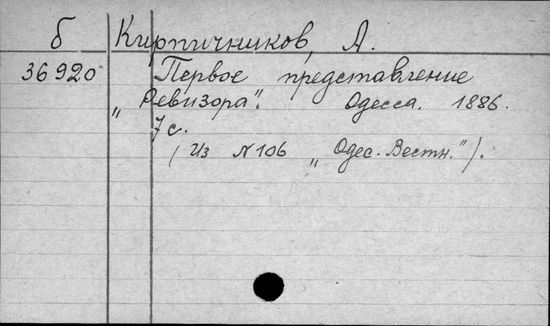 б Кирпичников, А.
36920 Первое представление
„Ревизора". Одесса. 1886.
7с.
(Из №106 „Одес. Вестн.").